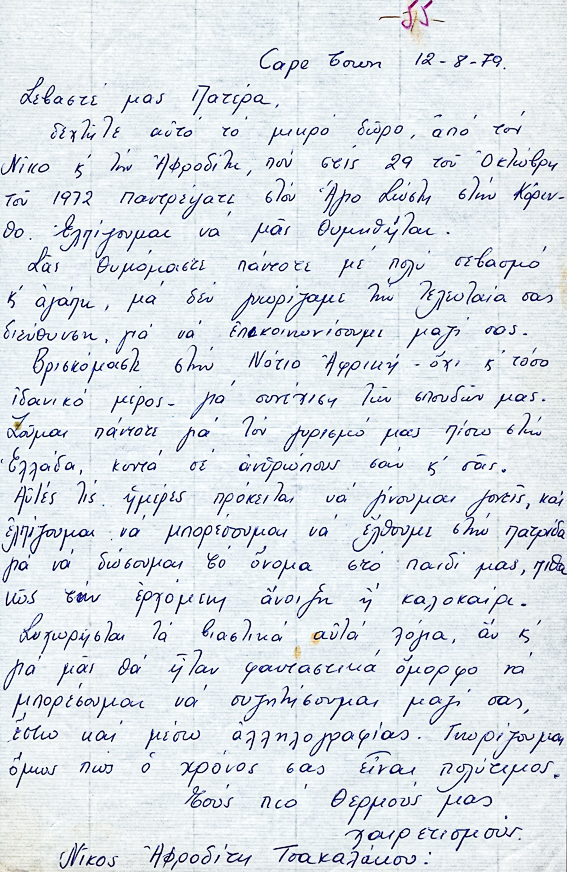 -55-
Cape Town 12-8-79.
Σεβαστέ μας Πατέρα,
δεχτῆτε αὐτό τό μικρό δῶρο, ἀπό τόν
Νίκο κ' τήν Ἀφροδίτη, πού στίς 29 τοῦ Ὀκτώβρη
τοῦ 1972 παντρέψατε στόν Ἅγιο Σώστη στήν Κόριν-
θο. Ἐλπίζουμαι νά μᾶς θυμηθῆται.
Σᾶς θυμόμαστε πάντοτε μέ πολύ σεβασμό
κ' ἀγάπη, μά δέν γνωρίζαμε τήν τελευταία σας
διεύθυνση, γιά νά ἐπικοινωνίσουμε μαζί σας.
Βρισκόμαστε στήν Νότιο Ἀφρική - ὄχι κ' τόσο
ἰδανικό μέρος - γιά συνέχιση τῶν σπουδῶν μας.
Ζοῦμαι πάντοτε γιά τόν γυρισμό μας πίσω στήν
Ἑλλάδα, κοντά σέ ἀνθρώπους σάν κ' σᾶς.
Αὐτές τίς ἡμέρες πρόκειται νά γίνουμαι γονεῖς, καί
ἐλπίζουμαι νά μπορέσουμαι νά ἔλθουμε στήν πατρίδα
γιά νά δώσουμαι τό ὄνομα στό παιδί μας, πιθα
νῶς τήν ἐρχόμενη ἄνοιξη ἤ καλοκαίρι.
Συγχωρῆσται τά βιαστικά αὐτά λόγια, ἄν κ'
γιά μᾶς θά ἦταν φανταστικά ὄμορφο νά
μπορέσουμαι νά συζητήσουμαι μαζί σας,
ἔστω καί μέσω ἀλληλογραφίας. Γνωρίζουμαι
ὅμως πώς ὁ χρόνος σας εἶναι πολύτιμος.
Τούς πιό θερμούς μας
χαιρετισμούς.
Νίκος Ἀφροδίτη Τσακαλάκου: